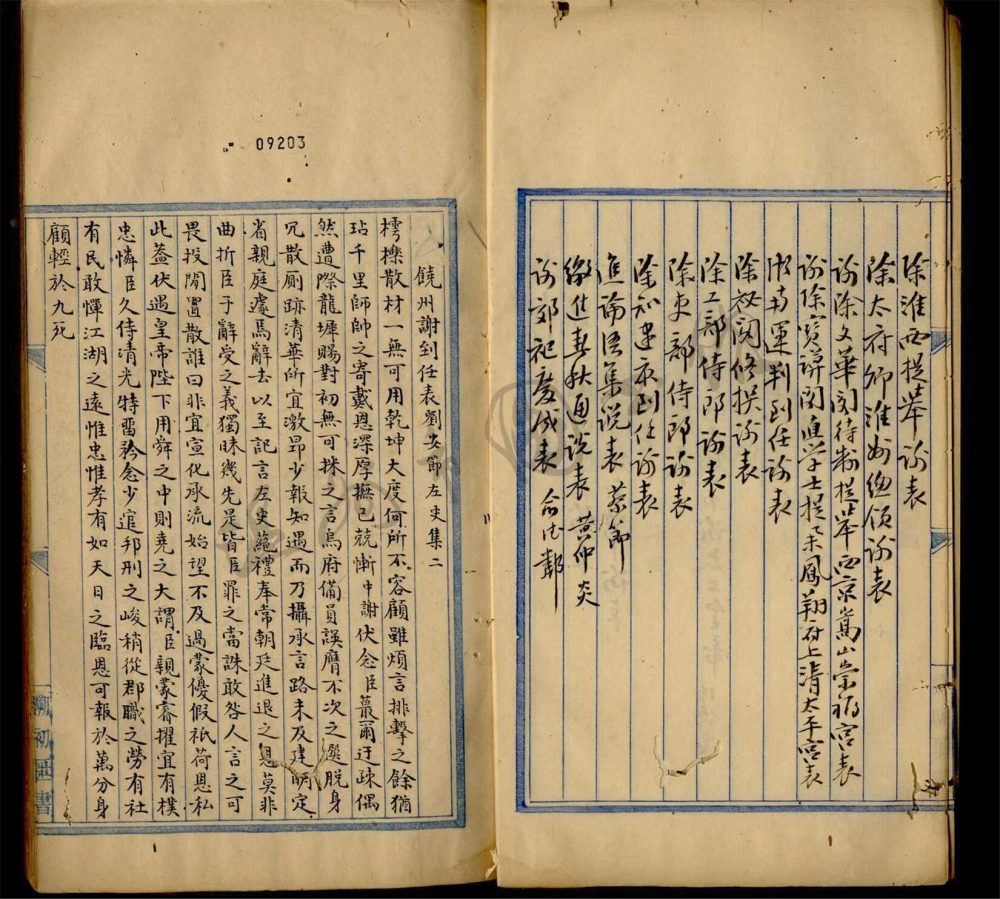 除淮西提舉謝表
除太府卿淮西總領謝表
謝除文華閣待制提舉西京嵩山崇福宮表
謝除寶謨閣直學士提舉鳳翔府上清太平宮表
湖南運判到任謝表
除祕閣修撰謝表
除工部侍郎謝表
除吏部侍郎謝表
除知建康到任謝表
進論語集說表 蔡節
繳進春秋通說表 黃仲炎
謝郊祀慶成表
09203
饒州謝到任表劉安節左史集二
樗櫟散材一無可用乾坤大度何所不容顧雖煩言排擊之餘猶
玷千里師帥之寄戴恩深厚撫己兢慚中謝伏念臣蕞爾迂疎偶
然遭際龍墀賜對初無可採之言烏府備員誤膺不次之選脫身
冗散廁跡清華所宜激昂少報知遇而乃攝承言路未及建明定
省親庭遽焉辭去以至記言左史蒞禮奉常朝廷進退之恩莫非
曲折臣子辭受之義獨昧幾先是皆臣罪之當誅敢咎人言之可
畏投閒置散誰曰非宜宣化承流始望不及過蒙優假祇荷恩私
此蓋伏遇皇帝陛下用舜之中則堯之大謂臣親蒙睿擢宜有樸
忠憐臣久侍清光特畱矜念少逭邦刑之峻稍從郡職之勞有社
有民敢憚江湖之遠惟忠惟孝有如天日之臨恩可報於萬分身
顧輕於九死